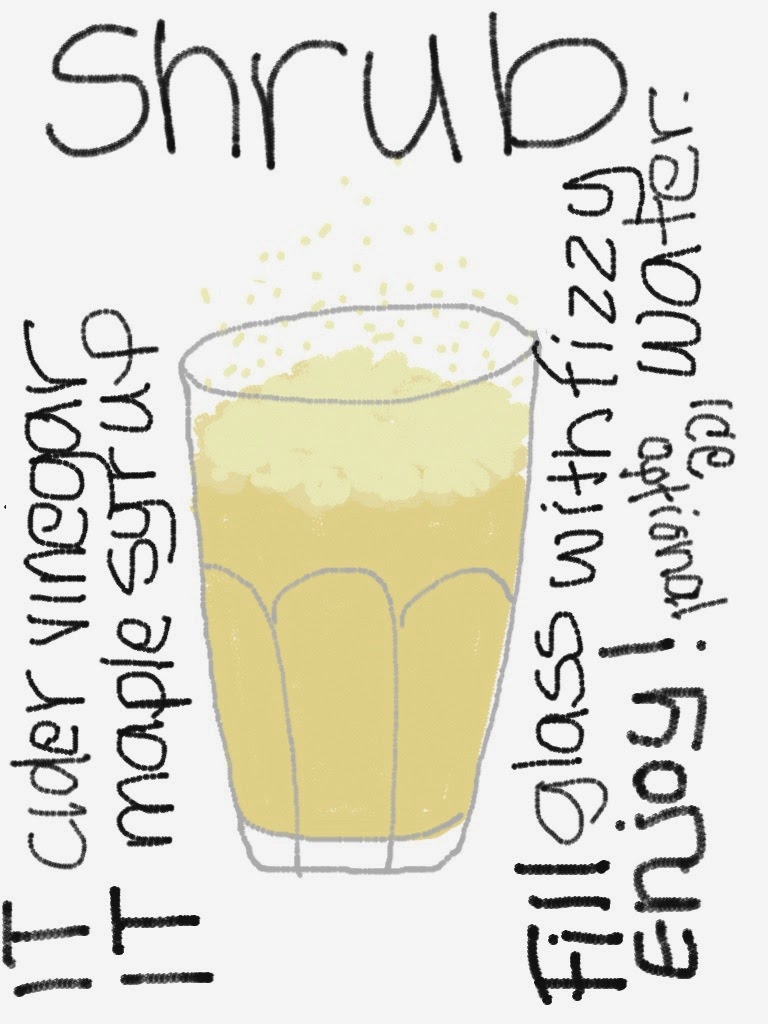 Shrub
1T cider vinegar
1T maple syrup
Fill glass with fizzy
water.
Enjoy!
optional
ice